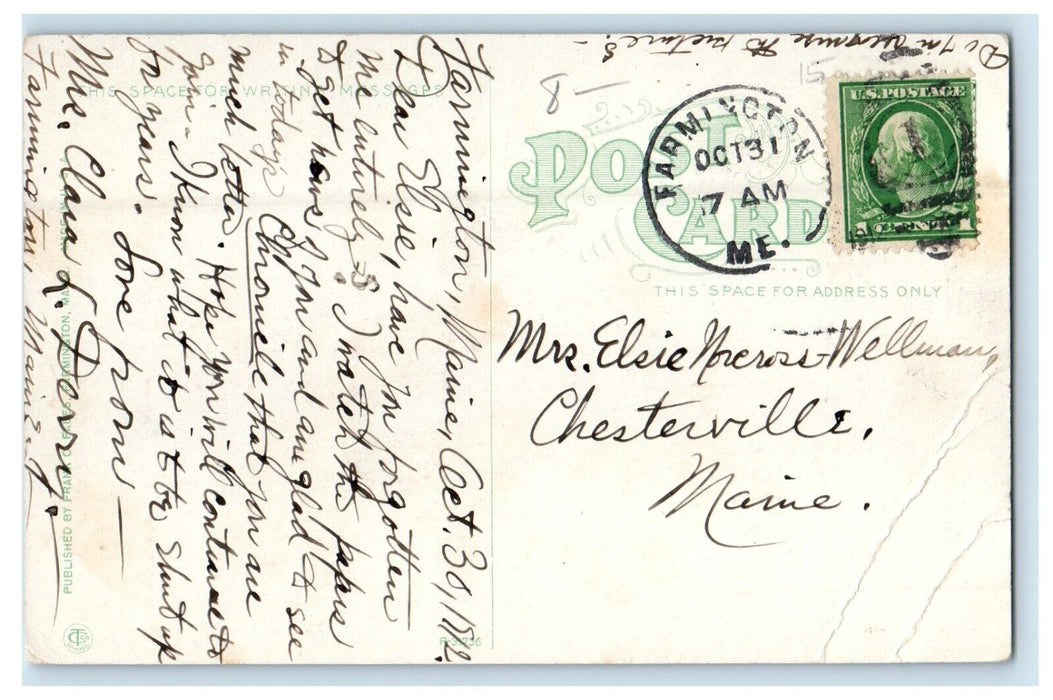 Do you recognize the picture? –
15
8 –
THIS SPACE FOR WRITING MESSAGES
POST CARD
FARMINGTON
OCT 31
7 AM
ME.
U.S. POSTAGE
1 CENT 1
THIS SPACE FOR ADDRESS ONLY
Mrs. Elsie Norcross-Wellman,
Chesterville,
Maine.
Farmington, Maine, Oct. 30, 1912.
Dear Elsie, have you forgotten
me entirely? I watch the papers
to get news of you and am glad to see
in today's Chronicle that you are
much better. Hope you will continue to
gain. I know what it is to be shut up
for years. Love from –
Mrs. Clara L.
Farmington, Maine.
PUBLISHED BY FRANK
FARMINGTON, MA